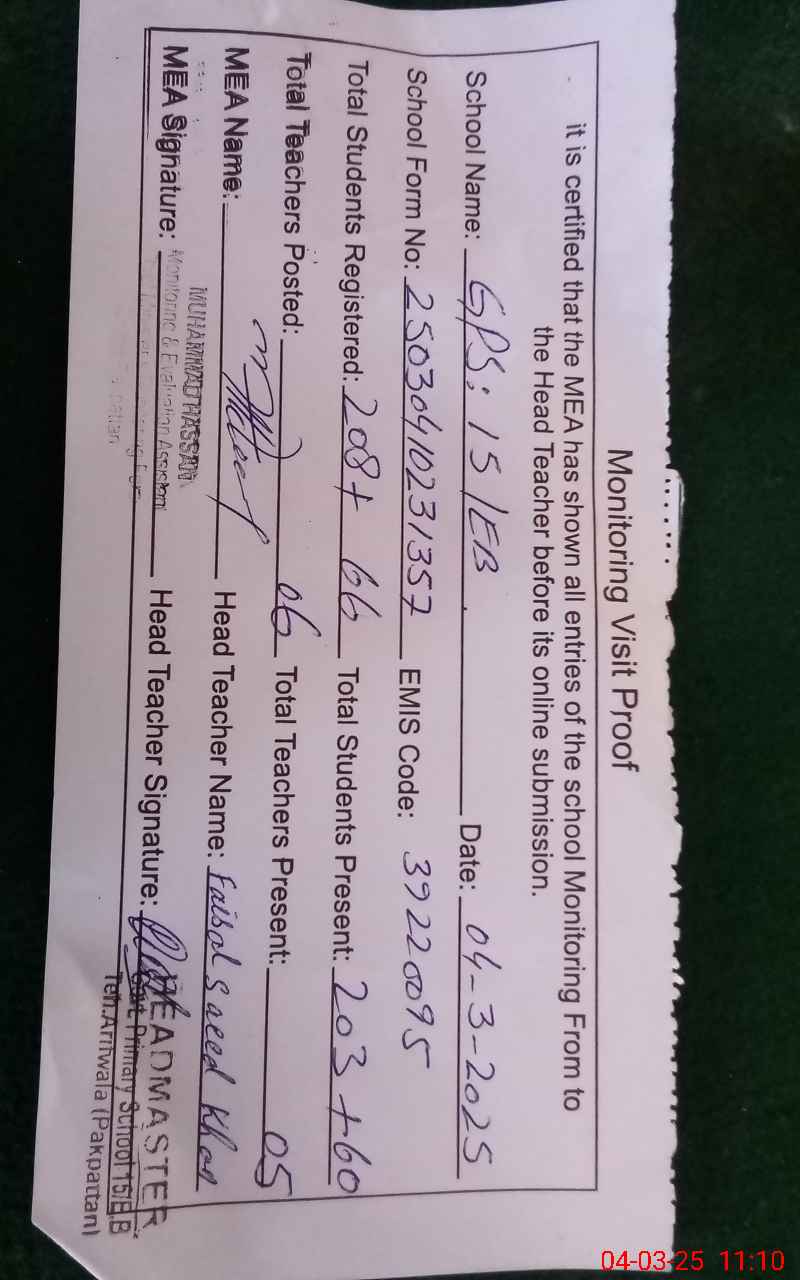 Monitoring Visit Proof
it is certified that the MEA has shown all entries of the school Monitoring From to
the Head Teacher before its online submission.
School Name: GPS: 15/EB Date: 04-3-2025
School Form No: 25030410231357 EMIS Code: 39220095
Total Students Registered: 208+ 66 Total Students Present: 203+60
Total Teachers Posted: 06 Total Teachers Present: 05
MEA Name: Head Teacher Name: Faisal Saeed Khan
MUHAMMAD HASSAN
MEA Signature: Head Teacher Signature:
Monitoring & Evaluation Assistant
HEADMASTER
Govt. Primary School 15/E.B
Teh. Arifwala (Pakpattan)
04-03-25 11:10